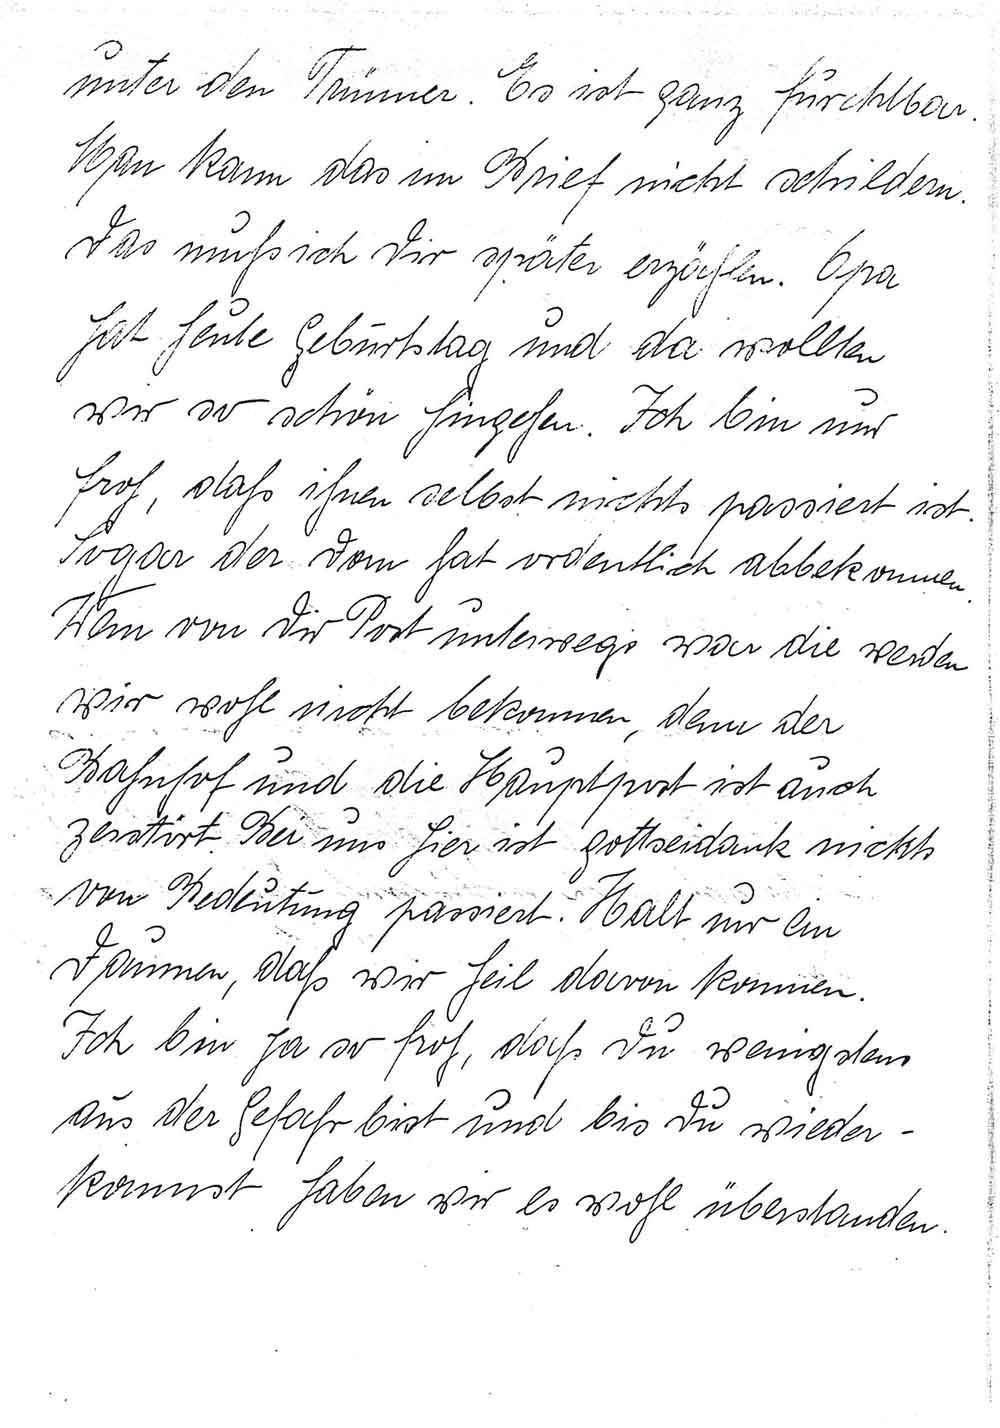 unter den Trümmer. Es ist ganz furchtbar.
Man kann das im Brief nicht schildern.
Das muß ich Dir später erzählen. Opa
hat heute Geburtstag und da wollten
wir so schön hingehen. Ich bin nur
froh, daß ihnen selbst nichts passiert ist.
Sogar der Dom hat ordentlich abbekommen.
Wenn von Dir Post unterwegs war die werden
wir wohl nicht bekommen, denn der
Bahnhof und die Hauptpost ist auch
zerstört. Bei uns hier ist gottseidank nichts
von Bedeutung passiert. Halt nur ein
Daumen, daß wir heil davon kommen.
Ich bin ja so froh, daß Du wenigstens
aus der Gefahr bist und bis Du wieder-
kommst haben wir es wohl überstanden.